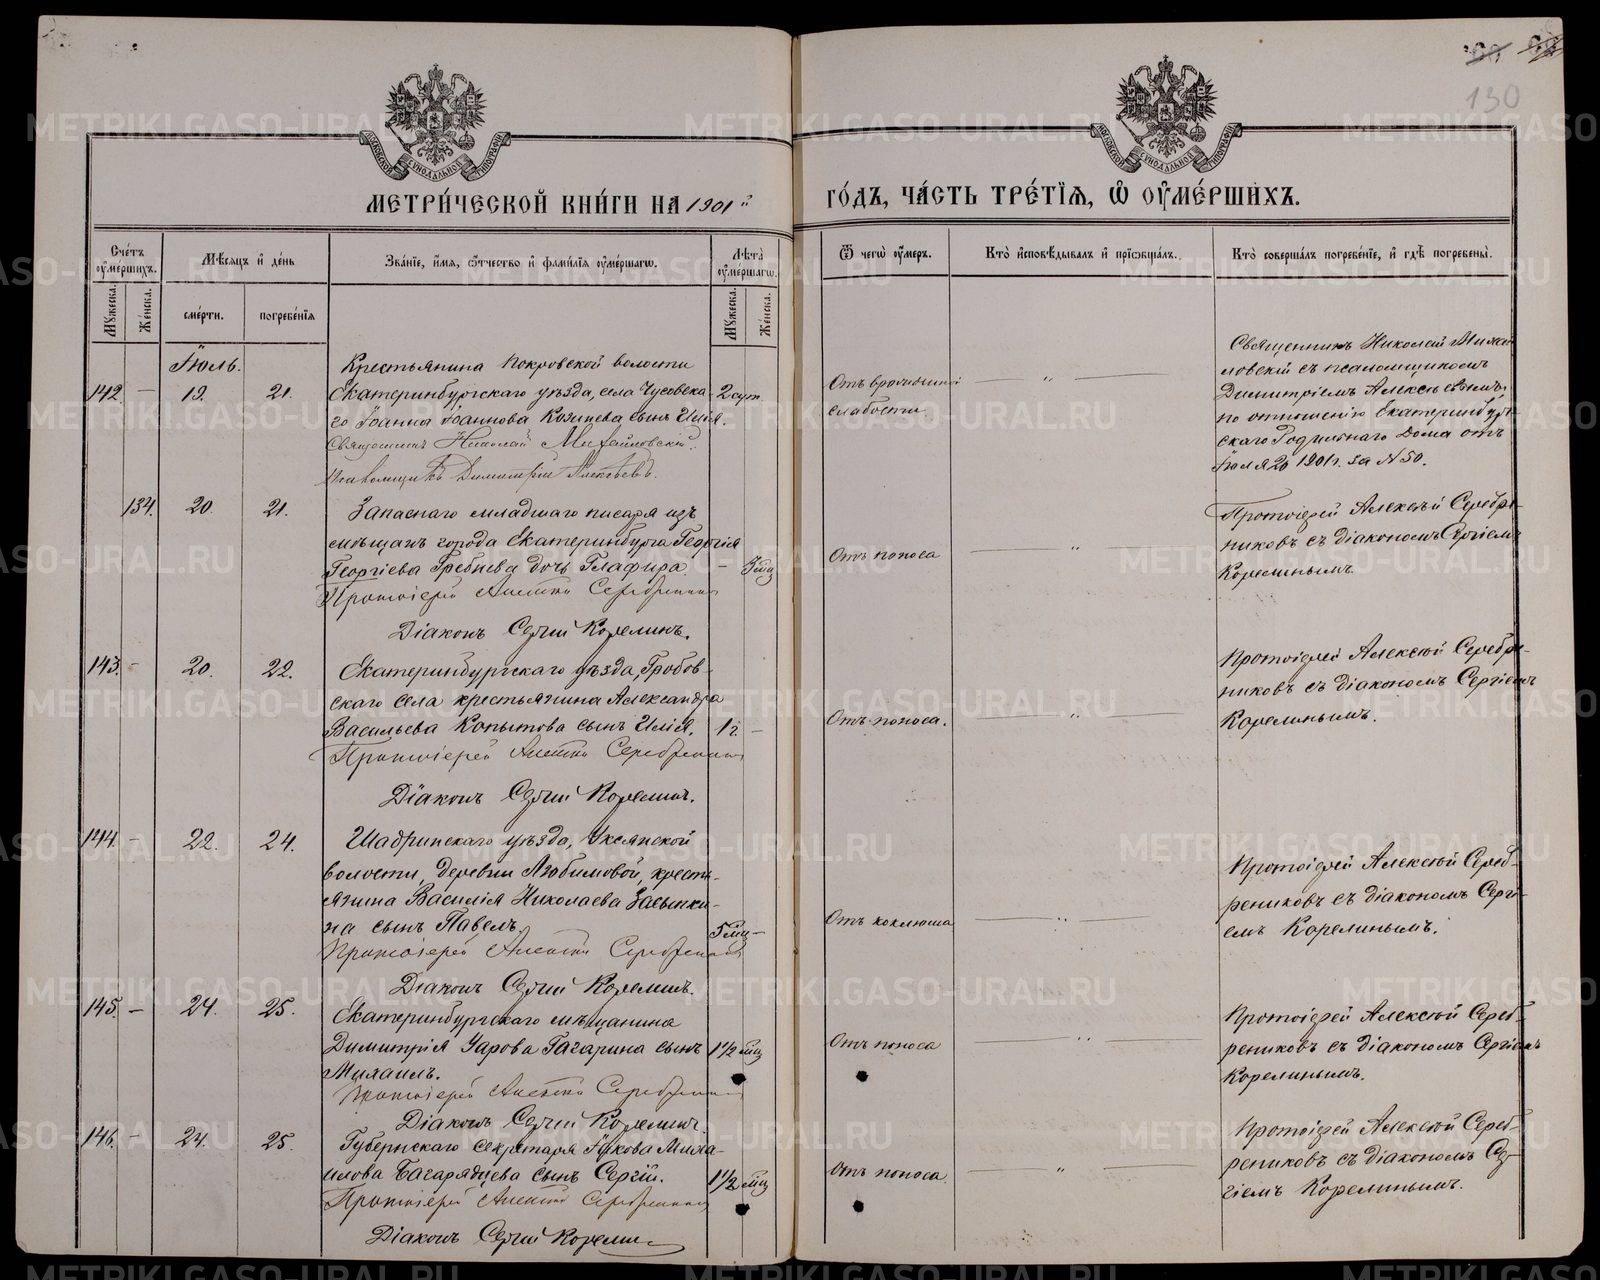 130
МЕТРИ́ЧЕСКОЙ КНИ́ГИ НА 1901й ГО́ДЪ, ЧА́СТЬ ТРЕ́ТІѦ, Ѡ ОУМЕ́РШИХЪ.
Сче́тъ оуме́ршихъ.
Мѣ́сѧцъ и де́нь
Зва́ніе, и́мѧ, ѻ҆́тчество и фами́лїѧ оуме́ршагѡ.
Лѣ́та оуме́ршагѡ.
Ѿ чегѡ̀ оу́меръ.
Кто̀ исповѣ́дывалъ и прїѡбща́лъ.
Кто̀ соверша́лъ погребе́ніе, и гдѣ̀ погребены̀.
Мꙋ́жеска.
Же́нска.
сме́рти.
погребе́нїѧ
Мꙋ́жеска.
Же́нска.
Іюль.
142 - 19. 21.
Крестьянина Покровской волости
Екатеринбургскаго уѣзда, села
го Іоанна Іоаннова сынъ Илія.
2 сут.
Священникъ Николай Михайловскій.
Псаломщикъ Димитрій Алексѣевъ.
Отъ врожденной
слабости.
Священникъ Николай Михай
ловскій съ псаломщикомъ
Димитріемъ Алексѣевымъ,
по отношенію Екатеринбург
скаго Родильнаго Дома отъ
Іюля 20 1901 г. за № 50.
134. 20. 21.
Запаснаго младшаго писаря изъ
мѣщанъ города Екатеринбурга Георгія
Георгіева Гребнева дочь Глафира. -
Протоіерей Алексѣй Серебренниковъ
Діаконъ Сергій Корелинъ.
Отъ поноса
Протоіерей Алексѣй Серебре
никовъ съ діакономъ Сергіемъ
Корелинымъ.
143. - 20. 22.
Екатеринбургскаго уѣзда, Гробов-
скаго села крестьянина Александра
Васильева Копытова сынъ Илія. 1 г. -
Протоіерей Алексѣй Серебренниковъ
Діаконъ Сергій Корелинъ.
Отъ поноса.
Протоіерей Алексѣй Серебре-
никовъ съ діакономъ Сергіемъ
Корелинымъ.
144. - 22. 24.
Шадринскаго уѣзда, Уксянской
волости, деревни Любимовой, кресть-
янина Василія Николаева Засыпки-
на сынъ Павелъ. 5 мц -
Протоіерей Алексѣй Серебренниковъ
Діаконъ Сергій Корелинъ.
Отъ коклюша
Протоіерей Алексѣй Сереб-
рениковъ съ діакономъ Серги-
емъ Корелинымъ.
145. - 24. 25.
Екатеринбургскаго мѣщанина
Димитрія Уарова Гагарина сынъ 1½ мц
Михаилъ.
Протоіерей Алексѣй Серебренниковъ
Діаконъ Сергій Корелинъ.
Отъ поноса
Протоіерей Алексѣй Сереб-
рениковъ съ діакономъ Сергіемъ
Корелинымъ.
146. - 24. 25.
Губернскаго секретаря Іакова Миха-
илова Багарядцева сынъ Сергій. 1½ мц
Протоіерей Алексѣй Серебренниковъ
Діаконъ Сергій Корелинъ
Отъ поноса.
Протоіерей Алексѣй Сереб-
рениковъ съ діакономъ Сер-
гіемъ Корелинымъ.
METRIKI.GASO-URAL.RU